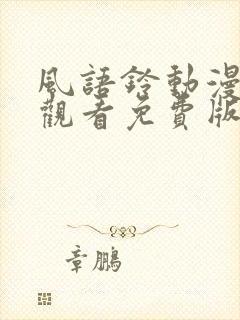 風語鈴動漫
觀看免費版
章鵬